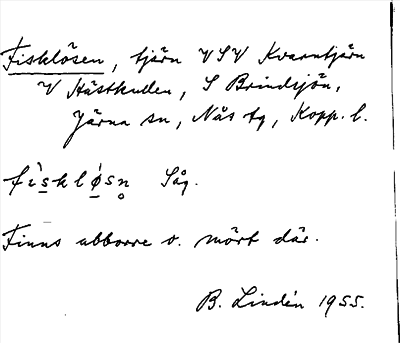 Fisklösen, tjärn VSV Kvarntjärn
V Hästkullen, S Brindsjön,
Järna sn, Nås tg, Kopp. l.
fì̀skløsn̥ Såg.
Finns abborre o. mört där.
B. Lindén 1955.